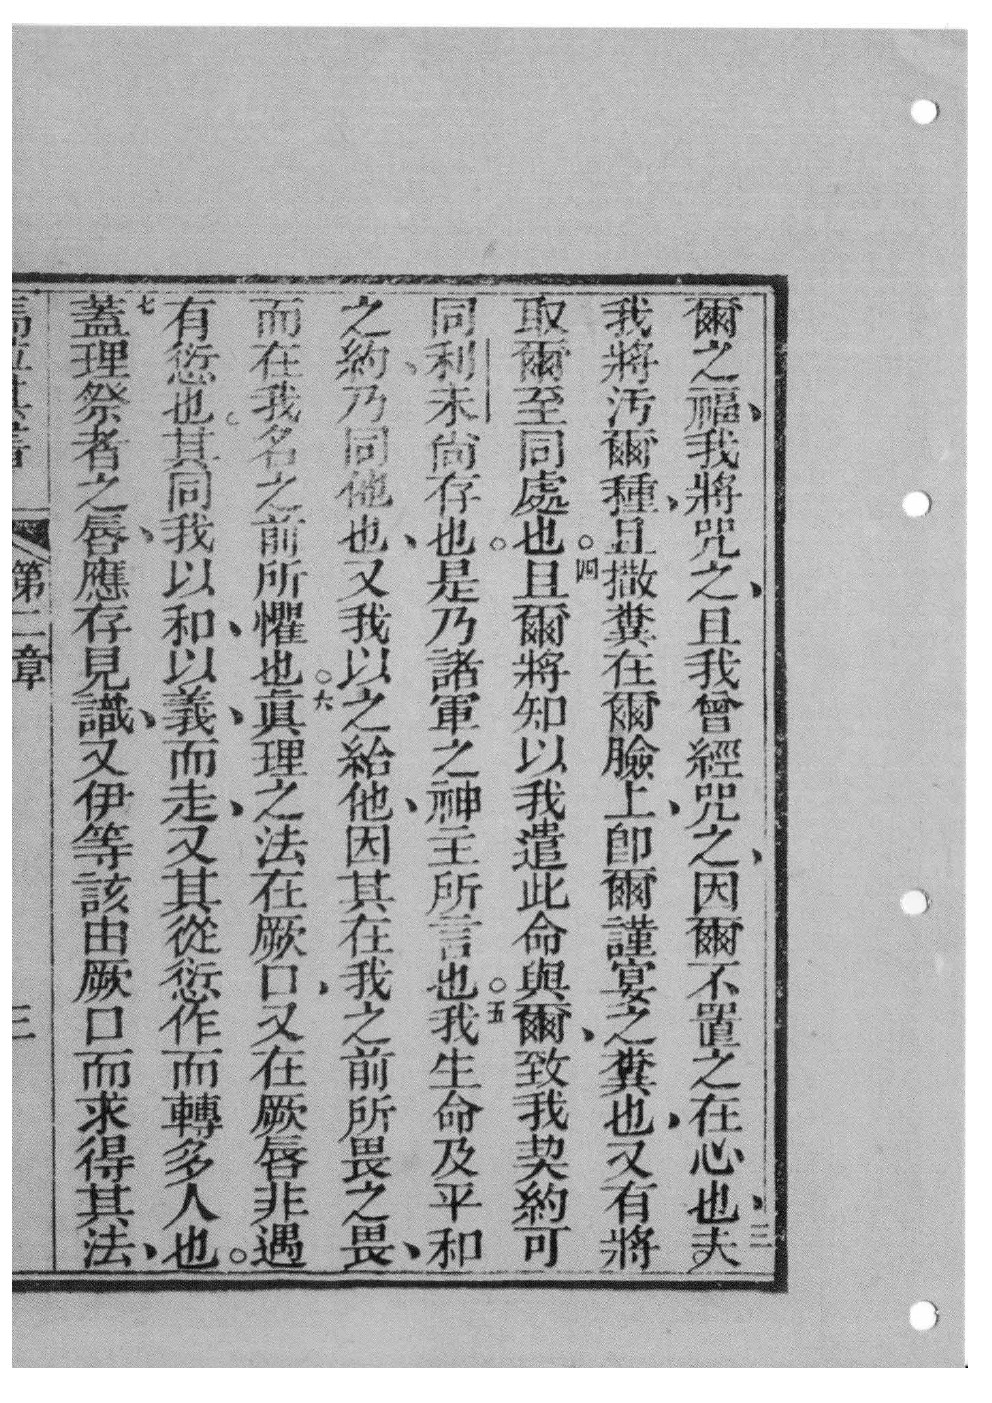 爾之福、我將咒之、且我曾經咒之、因爾不置之在心也、三夫
我將汚爾種、且撒糞在爾臉上、卽爾謹宴之糞也、又有將
取爾至同處也。四且爾將知以我遣此命與爾、致我契約可
同利未尙存也。是乃諸軍之神主所言也。五我生命及平和
之約、乃同他也、又我以之給他、因其在我之前所畏之畏、
而在我名之前所懼也。六眞理之法在厥口、又在厥唇非遇
有愆也。其同我以和、以義、而走、又其從愆作而轉多人也。
七蓋理祭者之唇、應存見識、又伊等該由厥口而求得其法、
第二章 三